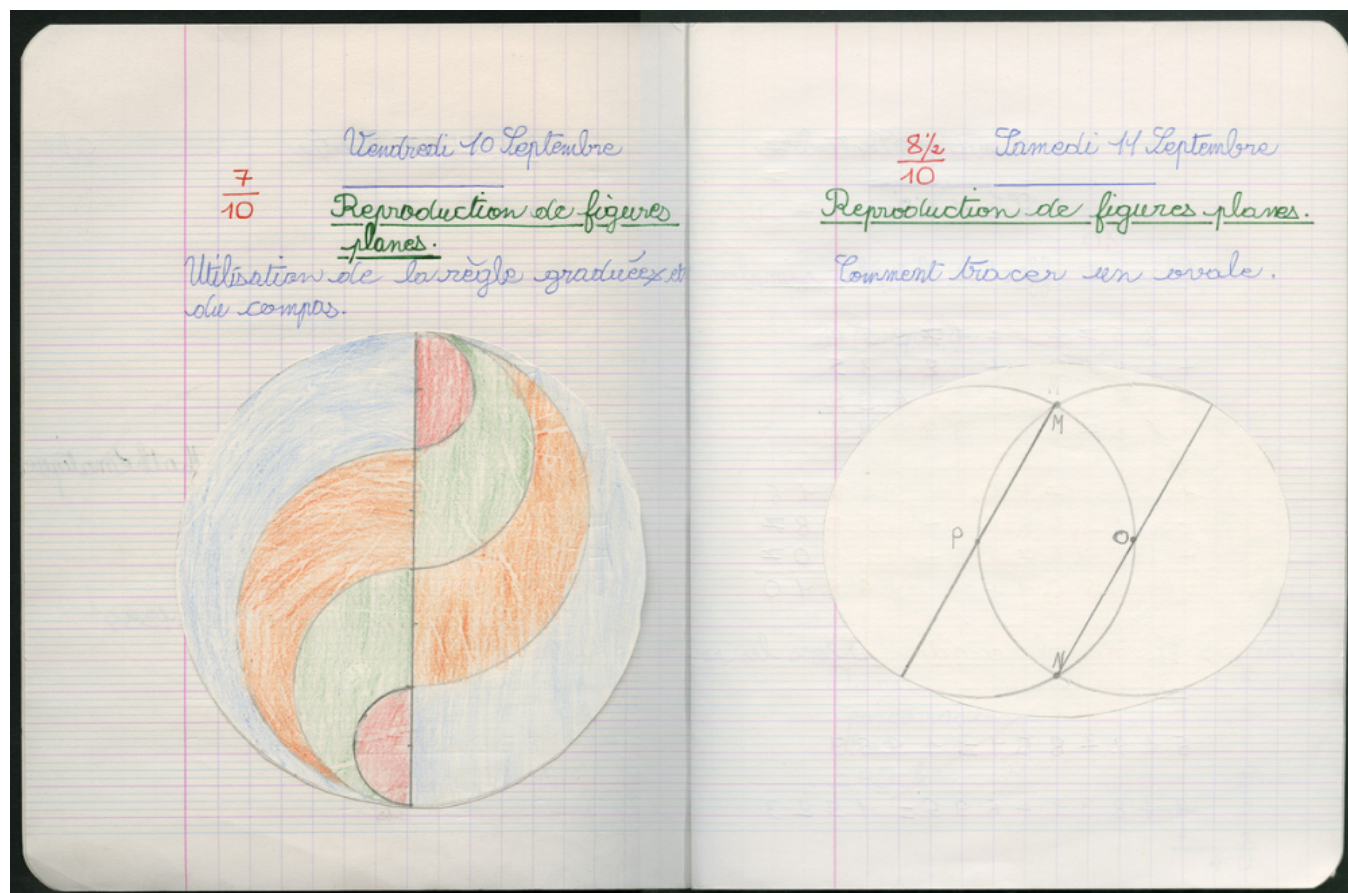 Vendredi 10 Septembre
7
10
Reproduction de figures
planes.
Utilisation de la règle graduée et
du compas.
8 1/2
10
Samedi 11 Septembre
Reproduction de figures planes.
Comment tracer un ovale.
M
P
O
N